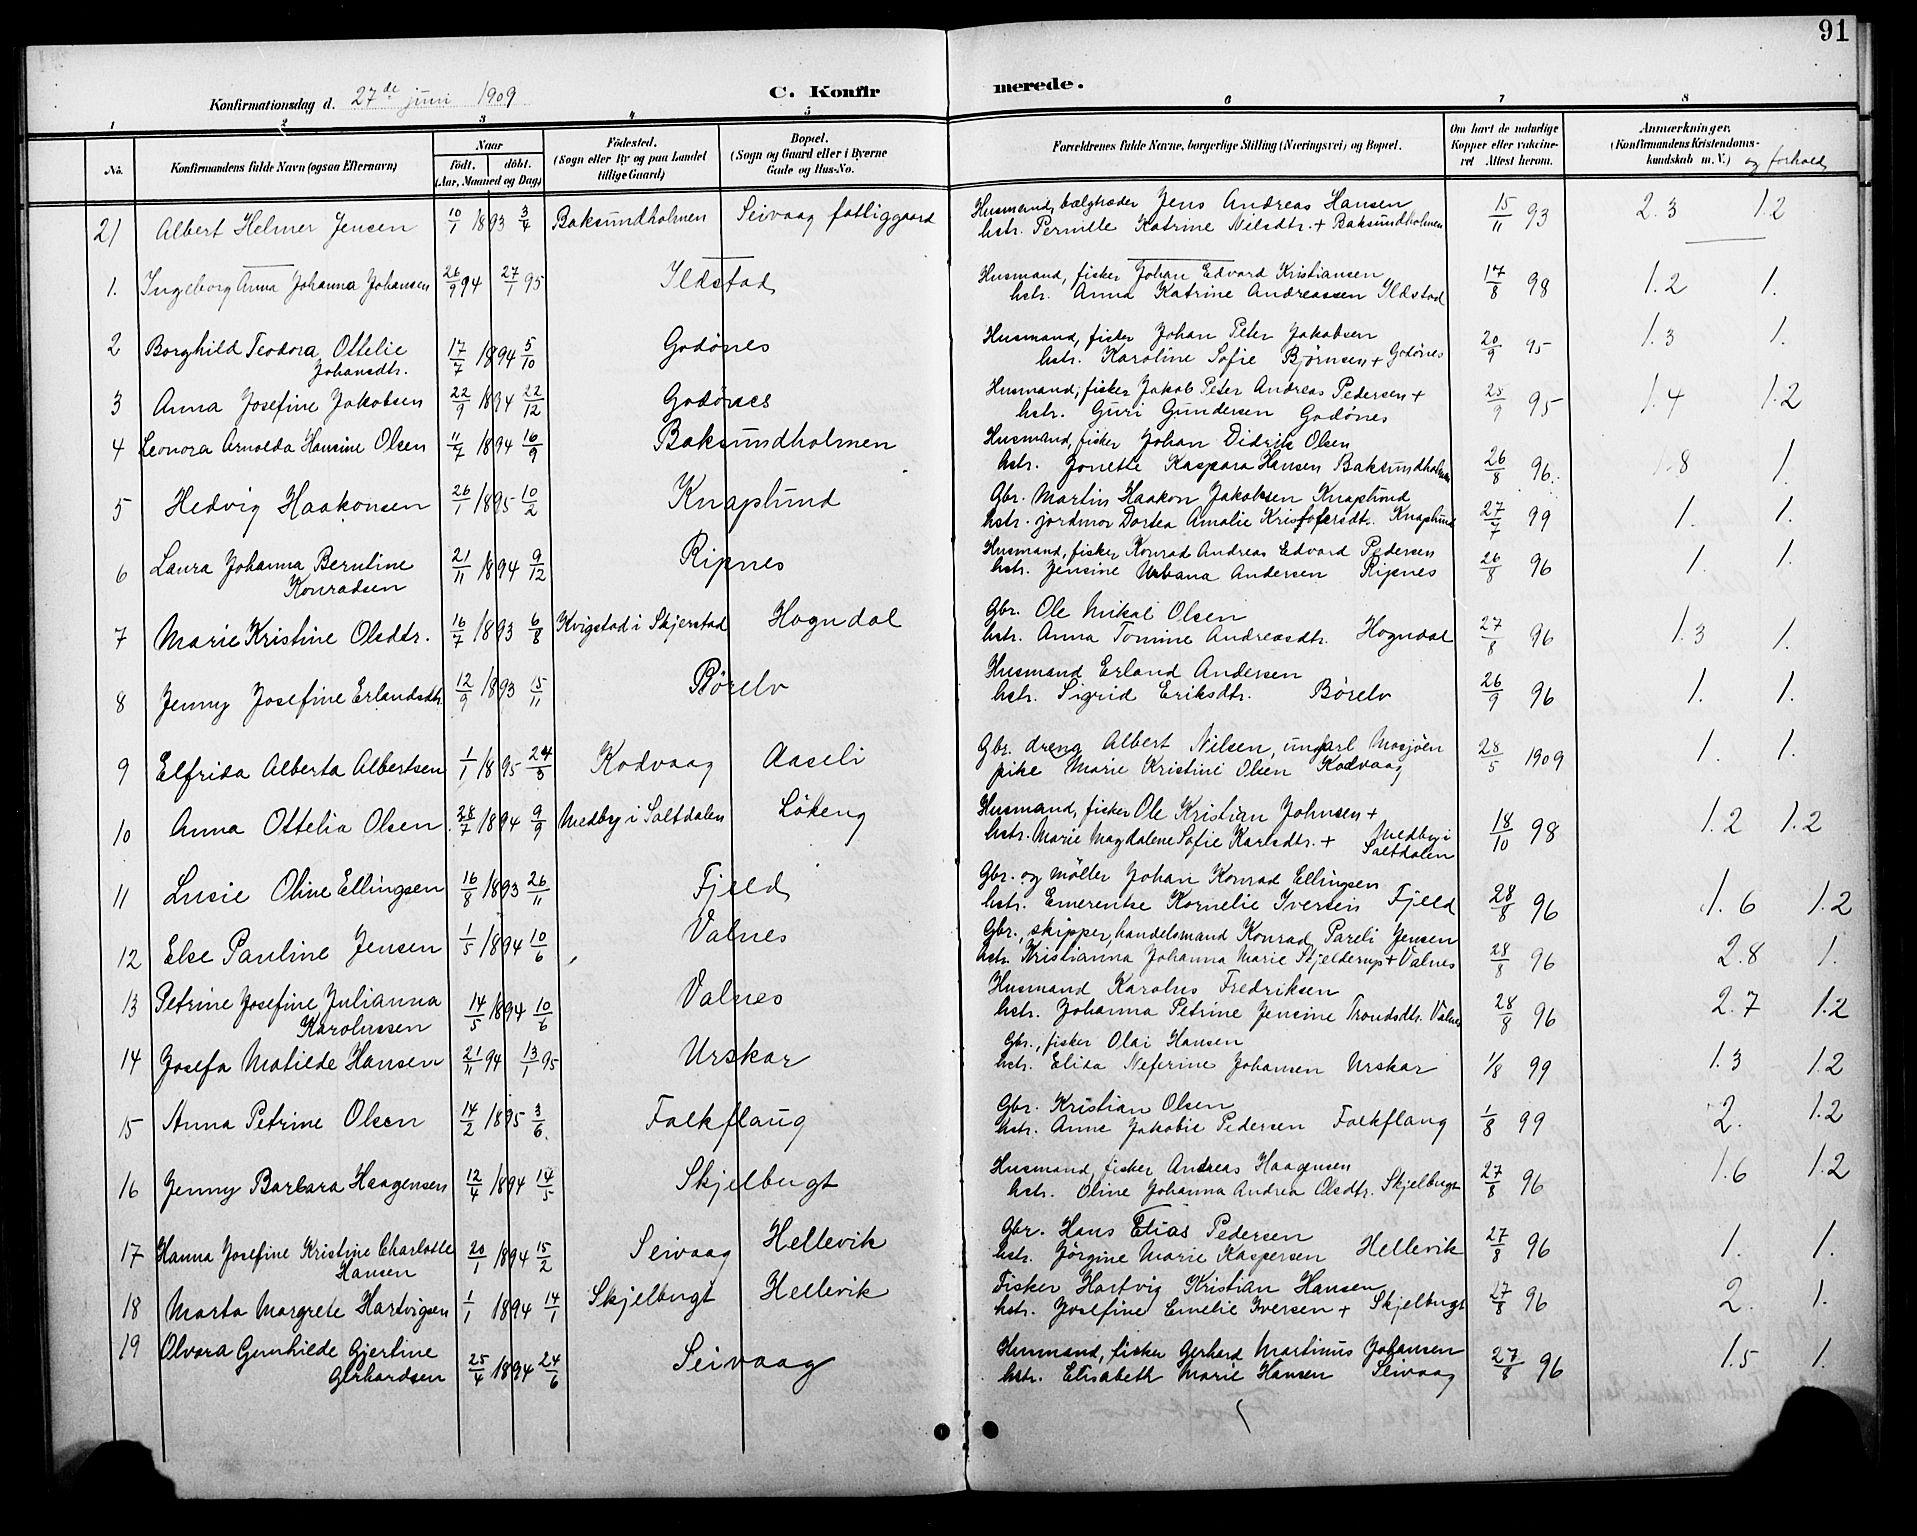 91
Konfirmationsdag d. 27de juni 1909
C. Konfirmerede.
1 2 3 4 5 6 7 8
No. Konfirmandens fulde Navn (ogsaa Efternavn) Naar födt. döbt. (Aar, Maaned og Dag) Födested. (Sogn eller By og paa Landet tillige Gaard) Bopæl. (Sogn og Gaard eller i Byerne Gade og Hus-No. Forældrenes fulde Navne, borgerlige Stilling (Næringsvei) og Bopæl. Om havt de naturlige Kopper eller vaccineret Attest herom. Anmærkninger. (Konfirmandens Kristendomskundskab m. V.) og forhold
21 Albert Helmer Jensen 10/1 1893 3/4 Baksundholmen Seivaag fatliggaard Husmand, bælgtræder Jens Andreas Hansen 15/11 93 2.3 1.2
hstr. Pernille Katrine Nilsdtr. + Baksundholmen
1. Ingeborg Anna Johanna Johansen 26/9 94 27/1 95 Ildstad Husmand, fisker Johan Edvard Kristiansen 17/8 98 1.2 1.
hstr. Anna Katrine Andreassen Ildstad
2 Borghild Teodora Ottelie 17/7 1894 5/10 Godönes Husmand, fisker Johan Peter Jakobsen 20/9 95 1.3 1.
Johansdtr. hstr. Karoline Sofie Bjørnsen + Godönes
3 Anna Josefine Jakobsen 22/9 1894 22/12 Godönes Husmand, fisker Jakob Peter Andreas Pedersen + 25/9 95 1.4 1.2
hstr. Guri Gundersen Godönes
4 Leonora Arnolda Hansine Olsen 11/7 1894 16/9 Baksundholmen Husmand, fisker Johan Didrik Olsen 26/8 96. 1.8 1.
hstr. Jonette Kaspara Hansen Baksundholmen
5 Hedvig Haakonsen 26/1 1895 10/2 Knaplund Gbr. Martin Haakon Jakobsen Knaplund 27/7 99 1. 1.
hstr. jordmor Dortea Amalie Kristofersdtr. Knaplund
6 Laura Johanna Berntine 21/11 1894 9/12 Ripnes Husmand, fisker Konrad Andreas Edvard Pedersen 26/8 96 1. 1.
Konradsen hstr. Jensine Urbana Andersen Ripnes
7 Marie Kristine Olsdtr. 16/7 1893 6/8 Kvigstad i Skjerstad Hogndal Gbr. Ole Mikal Olsen 27/8 96 1.3 1.
hstr. Anna Tomine Andreasdtr. Hogndal
8 Jenny Josefine Erlandsdtr. 12/9 1893 15/11 Börelv Husmand Erland Andersen 26/9 96 1. 1.
hstr. Sigrid Eriksdtr. Börelv
9 Elfrida Alberta Albertsen 1/1 1895 24/3 Kodvaag Aaseli Gbr. dreng Albert Nilsen, ungkarl Mosjöen 28/5 1909 1. 1.
pike Marie Kristine Olsen Kodvaag
10 Anna Ottelia Olsen 28/7 1894 9/9 Medby i Saltdalen Lökeng Husmand, fisker Ole Kristian Johnsen + 18/10 98 1.2 1.2
hstr. Marie Magdalene Sofie Karlsdtr. + Medby i Saltdalen
11 Lusie Oline Ellingsen 16/8 1893 26/11 Fjeld Gbr. og Möller Johan Konrad Ellingsen 28/8 96 1.6 1.2
hstr. Emerentse Kornelie Iversen Fjeld
12 Else Pauline Jensen 1/5 1894 10/6 Valnes Gbr., skipper, handelsmand Konrad Pareli Jensen 28/8 96 2.8 1.
hstr. Kristianna Johanna Marie Skjelderup + Valnes
13 Petrine Josefine Julianna 14/5 1894 10/6 Valnes Husmand Karolus Fredriksen 28/8 96 2.7 1.2
Karolussen hstr. Johanna Petrine Jensine Trondsdtr. Valnes
14 Josefa Matilde Hansen 21/11 94 13/1 95 Urskar Gbr., fisker Olai Hansen 1/8 99 1.3 1.2
hstr. Elida Neferine Johansen Urskar
15 Anna Petrine Olsen 14/2 1895 3/6 Falkflaug Gbr. Kristian Olsen 1/8 99 2. 1.2
hstr. Anne Jakobie Pedersen Falkflaug
16 Jenny Barbara Haagensen 12/4 1894 14/5 Skjelbugt Husmand, fisker Andreas Haagensen 27/8 96 1.6 1.2
hstr. Oline Johanna Andrea Olsdtr. Skjelbugt
17 Hanna Josefine Kristine Charlotte 20/1 1894 15/2 Seivaag Hellevik Gbr. Hans Elias Pedersen 27/8 96 1. 1.
Hansen hstr. Jörgine Marie Kaspersen Hellevik
18 Marta Margrete Hartvigsen 1/1 1894 14/1 Skjelbugt Hellevik Fisker Hartvig Kristian Hansen 27/8 96 2. 1.
hstr. Josefine Emelie Iversen + Skjelbugt
19 Olvara Gunhilde Gjertine 25/4 1894 24/6 Seivaag Husmand, fisker Gerhard Martinus Johansen 27/8 96 1.5 1.
Gerhardsen hstr. Elisabeth Marie Hansen Seivaag